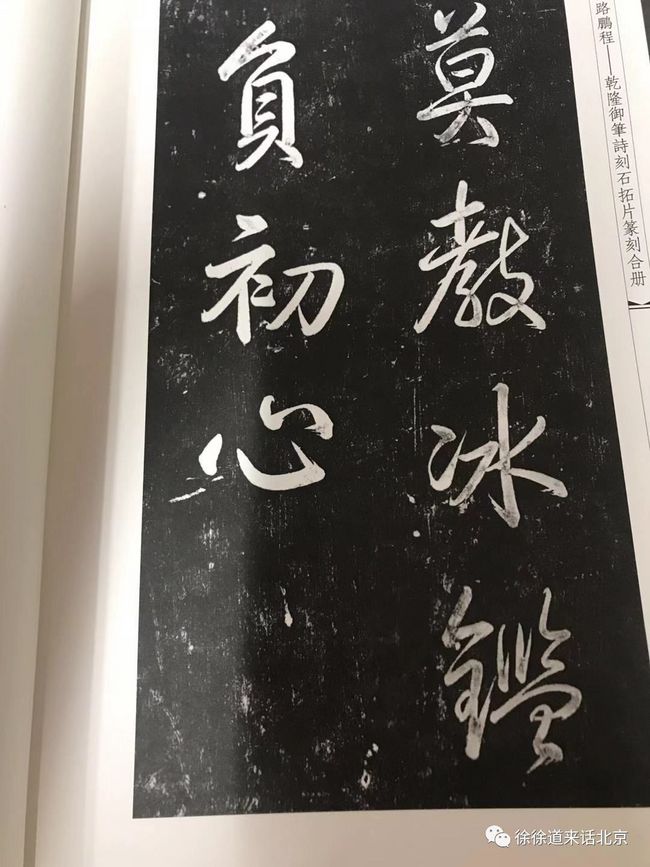 路鵬程——乾隆御筆詩刻石拓片篆刻合册
莫教冰鑑
負初心
徐徐道来话北京